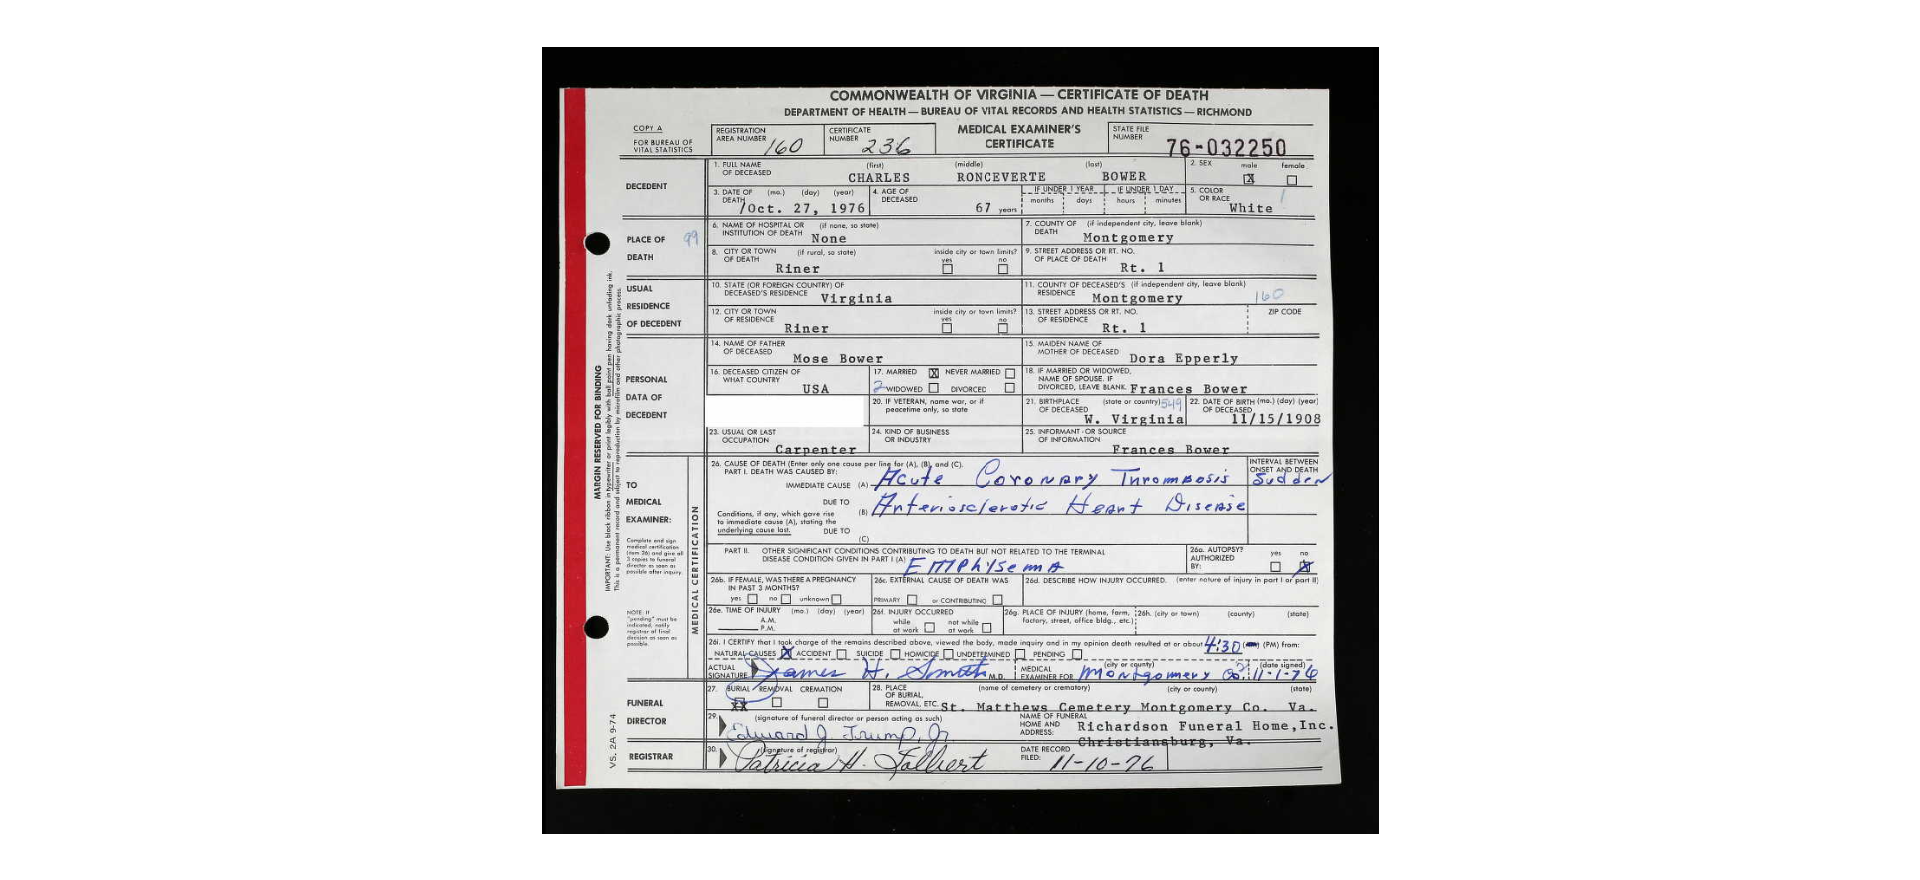 COMMONWEALTH OF VIRGINIA — CERTIFICATE OF DEATH
DEPARTMENT OF HEALTH — BUREAU OF VITAL RECORDS AND HEALTH STATISTICS — RICHMOND
COPY A
FOR BUREAU OF VITAL STATISTICS
REGISTRATION AREA NUMBER 160
CERTIFICATE NUMBER 236
MEDICAL EXAMINER'S CERTIFICATE
STATE FILE NUMBER 76-032250
DECEDENT
1. FULL NAME OF DECEASED (first) (middle) (last)
CHARLES RONCEVERTE BOWER
2. SEX male female
X
3. DATE OF DEATH (mo.) (day) (year)
Oct. 27, 1976
4. AGE OF DECEASED
67 years
IF UNDER 1 YEAR months days
IF UNDER 1 DAY hours minutes
5. COLOR OR RACE
White 1
PLACE OF DEATH
99
6. NAME OF HOSPITAL OR INSTITUTION OF DEATH (if none, so state)
None
7. COUNTY OF DEATH (if independent city, leave blank)
Montgomery
8. CITY OR TOWN OF DEATH (if rural, so state)
Riner
inside city or town limits? yes no
9. STREET ADDRESS OR RT. NO. OF PLACE OF DEATH
Rt. 1
USUAL RESIDENCE OF DECEDENT
10. STATE (OR FOREIGN COUNTRY) OF DECEASED'S RESIDENCE
Virginia
11. COUNTY OF DECEASED'S RESIDENCE (if independent city, leave blank)
Montgomery 160
12. CITY OR TOWN OF RESIDENCE
Riner
inside city or town limits? yes no
13. STREET ADDRESS OR RT. NO. OF RESIDENCE
Rt. 1
ZIP CODE
PERSONAL DATA OF DECEDENT
14. NAME OF FATHER OF DECEASED
Mose Bower
15. MAIDEN NAME OF MOTHER OF DECEASED
Dora Epperly
16. DECEASED CITIZEN OF WHAT COUNTRY
USA
17. MARRIED X NEVER MARRIED
2 WIDOWED DIVORCED
18. IF MARRIED OR WIDOWED, NAME OF SPOUSE. IF DIVORCED, LEAVE BLANK
Frances Bower
20. IF VETERAN, name war, or if peacetime only, so state
21. BIRTHPLACE OF DECEASED (state or country) 549
W. Virginia
22. DATE OF BIRTH OF DECEASED (mo.) (day) (year)
11/15/1908
23. USUAL OR LAST OCCUPATION
Carpenter
24. KIND OF BUSINESS OR INDUSTRY
25. INFORMANT - OR SOURCE OF INFORMATION
Frances Bower
TO MEDICAL EXAMINER:
Complete and sign medical certification (item 26) and give all 3 copies to funeral director as soon as possible after inquiry.
NOTE: If "pending" must be indicated, notify registrar of final decision as soon as possible.
MEDICAL CERTIFICATION
26. CAUSE OF DEATH (Enter only one cause per line for (A), (B), and (C).
PART I. DEATH WAS CAUSED BY:
IMMEDIATE CAUSE (A) Acute Coronary Thrombosis
INTERVAL BETWEEN ONSET AND DEATH
Sudden
Conditions, if any, which gave rise to immediate cause (A), stating the underlying cause last.
DUE TO (B) Arteriosclerotic Heart Disease
DUE TO (C)
PART II. OTHER SIGNIFICANT CONDITIONS CONTRIBUTING TO DEATH BUT NOT RELATED TO THE TERMINAL DISEASE CONDITION GIVEN IN PART I (A)
Emphysema
26a. AUTOPSY? AUTHORIZED BY: yes no X
26b. IF FEMALE, WAS THERE A PREGNANCY IN PAST 3 MONTHS?
yes no unknown
26c. EXTERNAL CAUSE OF DEATH WAS
PRIMARY or CONTRIBUTING
26d. DESCRIBE HOW INJURY OCCURRED. (enter nature of injury in part I or part II)
26e. TIME OF INJURY (mo.) (day) (year)
A.M.
P.M.
26f. INJURY OCCURRED
while at work not while at work
26g. PLACE OF INJURY (home, farm, factory, street, office bldg., etc.)
26h. (city or town) (county) (state)
26i. I CERTIFY that I took charge of the remains described above, viewed the body, made inquiry and in my opinion death resulted at or about 4:30 (PM) from:
NATURAL CAUSES X ACCIDENT SUICIDE HOMICIDE UNDETERMINED PENDING
ACTUAL SIGNATURE James H. Smith M.D.
MEDICAL EXAMINER FOR (city or county) Montgomery Co.
(date signed) 11-1-76
FUNERAL DIRECTOR
27. BURIAL REMOVAL CREMATION
XX
28. PLACE OF BURIAL, REMOVAL, ETC. (name of cemetery or crematory) (city or county) (state)
St. Matthews Cemetery Montgomery Co. Va.
29. (signature of funeral director or person acting as such)
Edward J. Trump, Jr.
NAME OF FUNERAL HOME AND ADDRESS:
Richardson Funeral Home, Inc.
Christiansburg, Va.
REGISTRAR
30. (signature of registrar)
Patricia H. Talbert
DATE RECORD FILED: 11-10-76
MARGIN RESERVED FOR BINDING
IMPORTANT: Use black ribbon in typewriter or print legibly with ball point pen having dark unfading ink.
This is a permanent record and subject to reproduction by microfilm and other photographic process.
VS. 2A 9-74